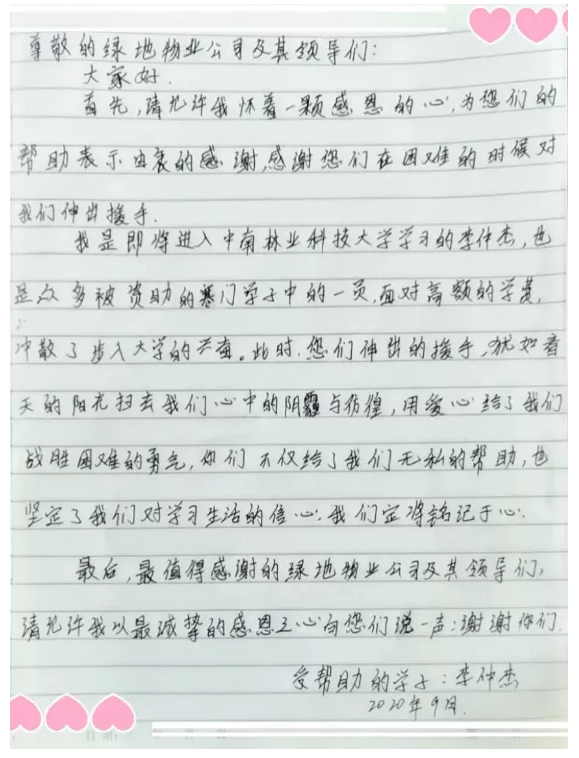 尊敬的绿地物业公司及其领导们:
大家好.
首先,请允许我怀着一颗感恩的心,为您们的
帮助表示由衷的感谢,感谢您们在困难的时候对
我们伸出援手.
我是即将进入中南林业科技大学学习的李仲杰,也
是众多被资助的寒门学子中的一员,面对高额的学费,
冲散了步入大学的兴奋。此时,您们伸出的援手,犹如春
天的阳光扫去我们心中的阴霾与彷徨,用爱心给了我们
战胜困难的勇气,你们不仅给了我们无私的帮助,也
坚定了我们对学习生活的信心.我们定将铭记于心.
最后,最值得感谢的绿地物业公司及其领导们,
请允许我以最诚挚的感恩之心向您们说一声:谢谢你们.
受帮助的学子:李仲杰
2020年9月.